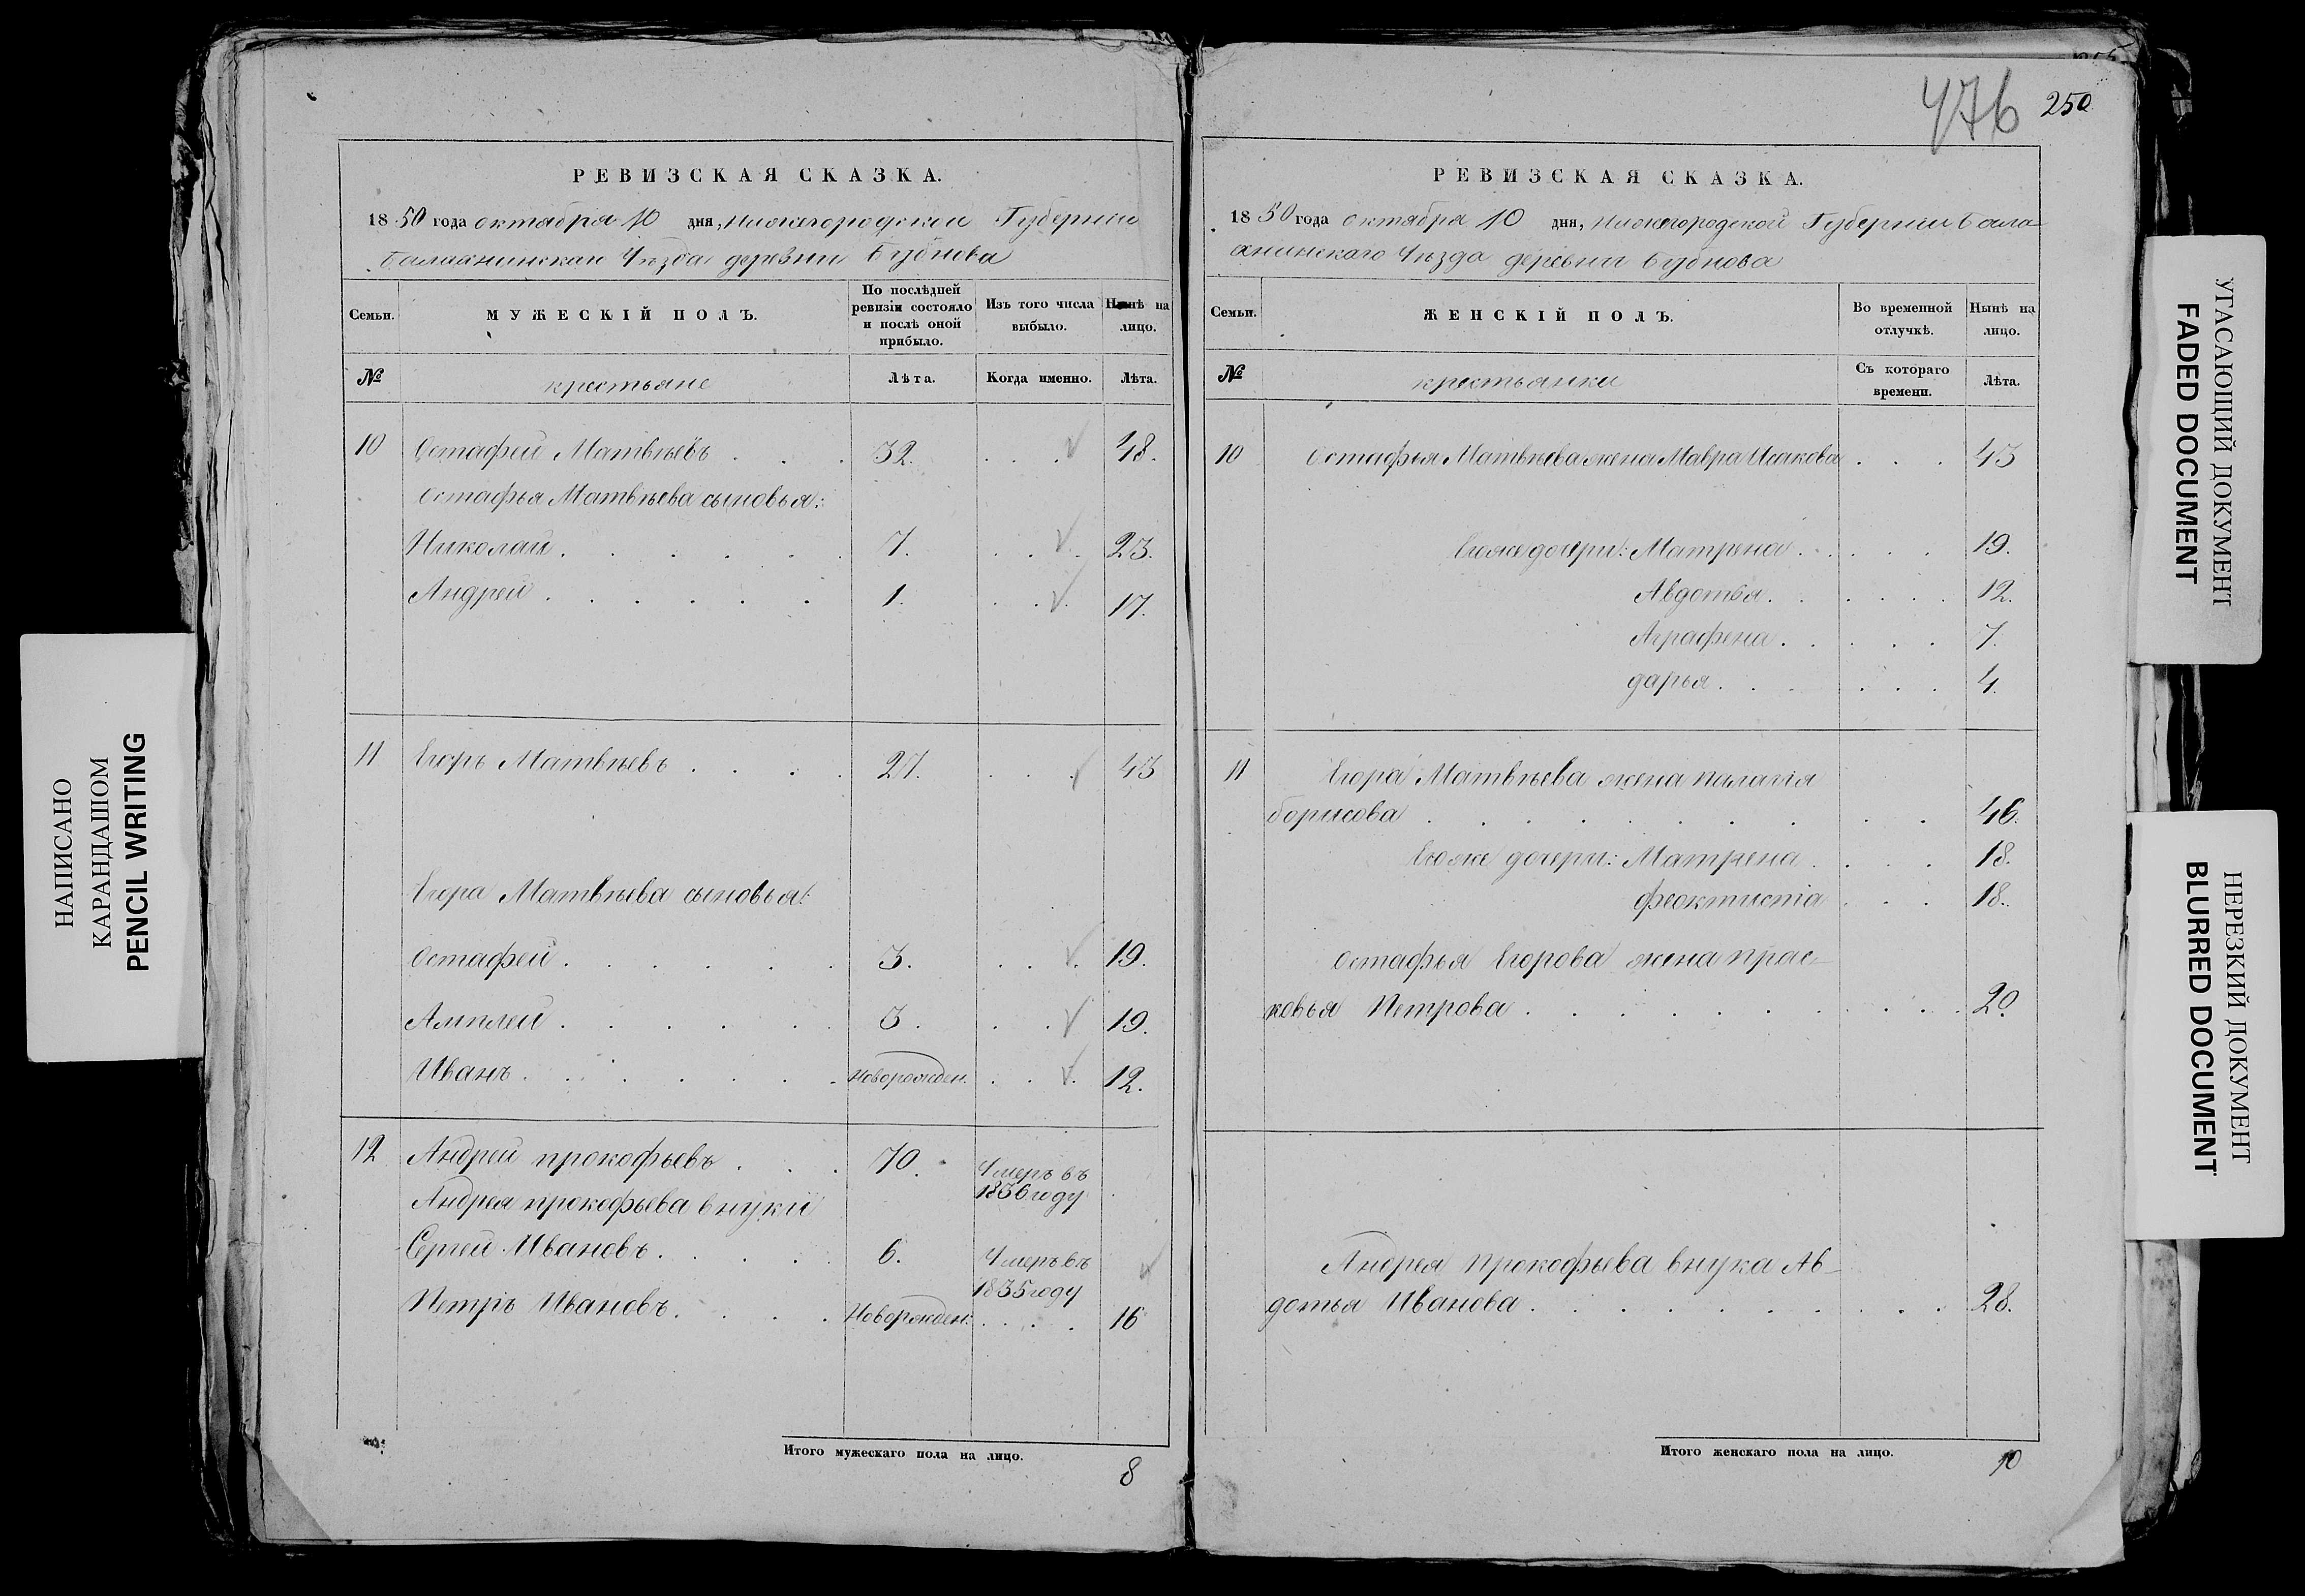 476 250
РЕВИЗСКАЯ СКАЗКА.
1850 года октября 10 дня, Нижегородской Губернии
Балахнинскаго Уѣзда деревни Бубнова
Семьи.
МУЖЕСКІЙ ПОЛЪ.
По послѣдней ревизіи состояло и послѣ оной прибыло.
Изъ того числа выбыло.
Нынѣ на лицо.
№ крестьяне Лѣта. Когда именно. Лѣта.
10 Остафей Матвѣевъ . . . 32. . . . 48.
Остафья Матвѣева сыновья:
Николай . . . . . . 7. . . . 23.
Андрей . . . . . . 1. . . . 17.
11 Егоръ Матвѣевъ . . . . 27. . . . 43
Егора Матвѣева сыновья:
Остафей . . . . . . 3. . . . 19.
Амплей . . . . . . 3. . . . 19.
Иванъ . . . . . . Новорожден. . . . 12.
12 Андрей прокофьевъ . . . 70. Умеръ въ 1836 году
Андрея прокофьева внуки
Сергей Ивановъ . . . . 6. Умеръ въ 1835 году
Петръ Ивановъ . . . . Новорожден: . . . . 16
Итого мужескаго пола на лицо.
8
РЕВИЗСКАЯ СКАЗКА.
1850 года октября 10 дня, Нижегородской Губернии бала-
хнинскаго Уѣзда деревни бубнова
Семьи.
ЖЕНСКІЙ ПОЛЪ.
Во временной отлучкѣ.
Нынѣ на лицо.
№ крестьянки Съ котораго времени. Лѣта.
10 Остафья Матвѣева жена Мавра Исакова . . . 43
Егоже дочери: Матрена . . . . . 19.
Авдотья . . . . . . 12.
Аграфена . . . . . 7.
дарья . . . . . . 4.
11 Егора Матвѣева жена палагія
борисова . . . . . . . . . . 46.
Егоже дочери: Матрена . . . . 18.
феоктиста . . . 18.
Остафья Егорова жена прас-
ковья Петрова . . . . . . . . . . 20.
Андрея прокофьева внука Ав-
дотья Иванова . . . . . . . . . 28.
Итого женскаго пола на лицо.
10
НАПИСАНО
КАРАНДАШОМ
PENCIL WRITING
УГАСАЮЩИЙ ДОКУМЕНТ
FADED DOCUMENT
НЕРЕЗКИЙ ДОКУМЕНТ
BLURRED DOCUMENT